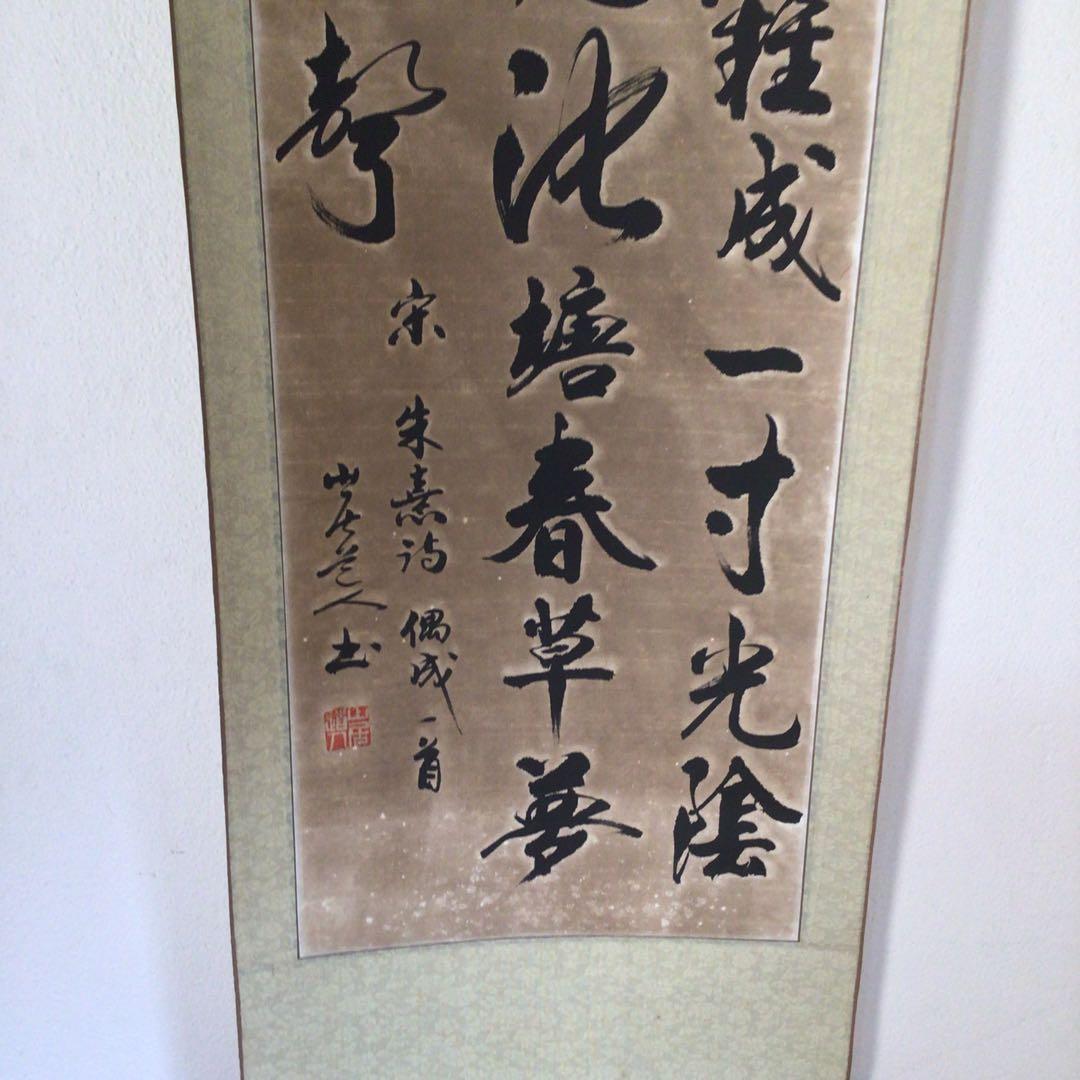 難成一寸光陰
池塘春草夢
聲
宋 朱熹诗 偶成一首
山居道人书